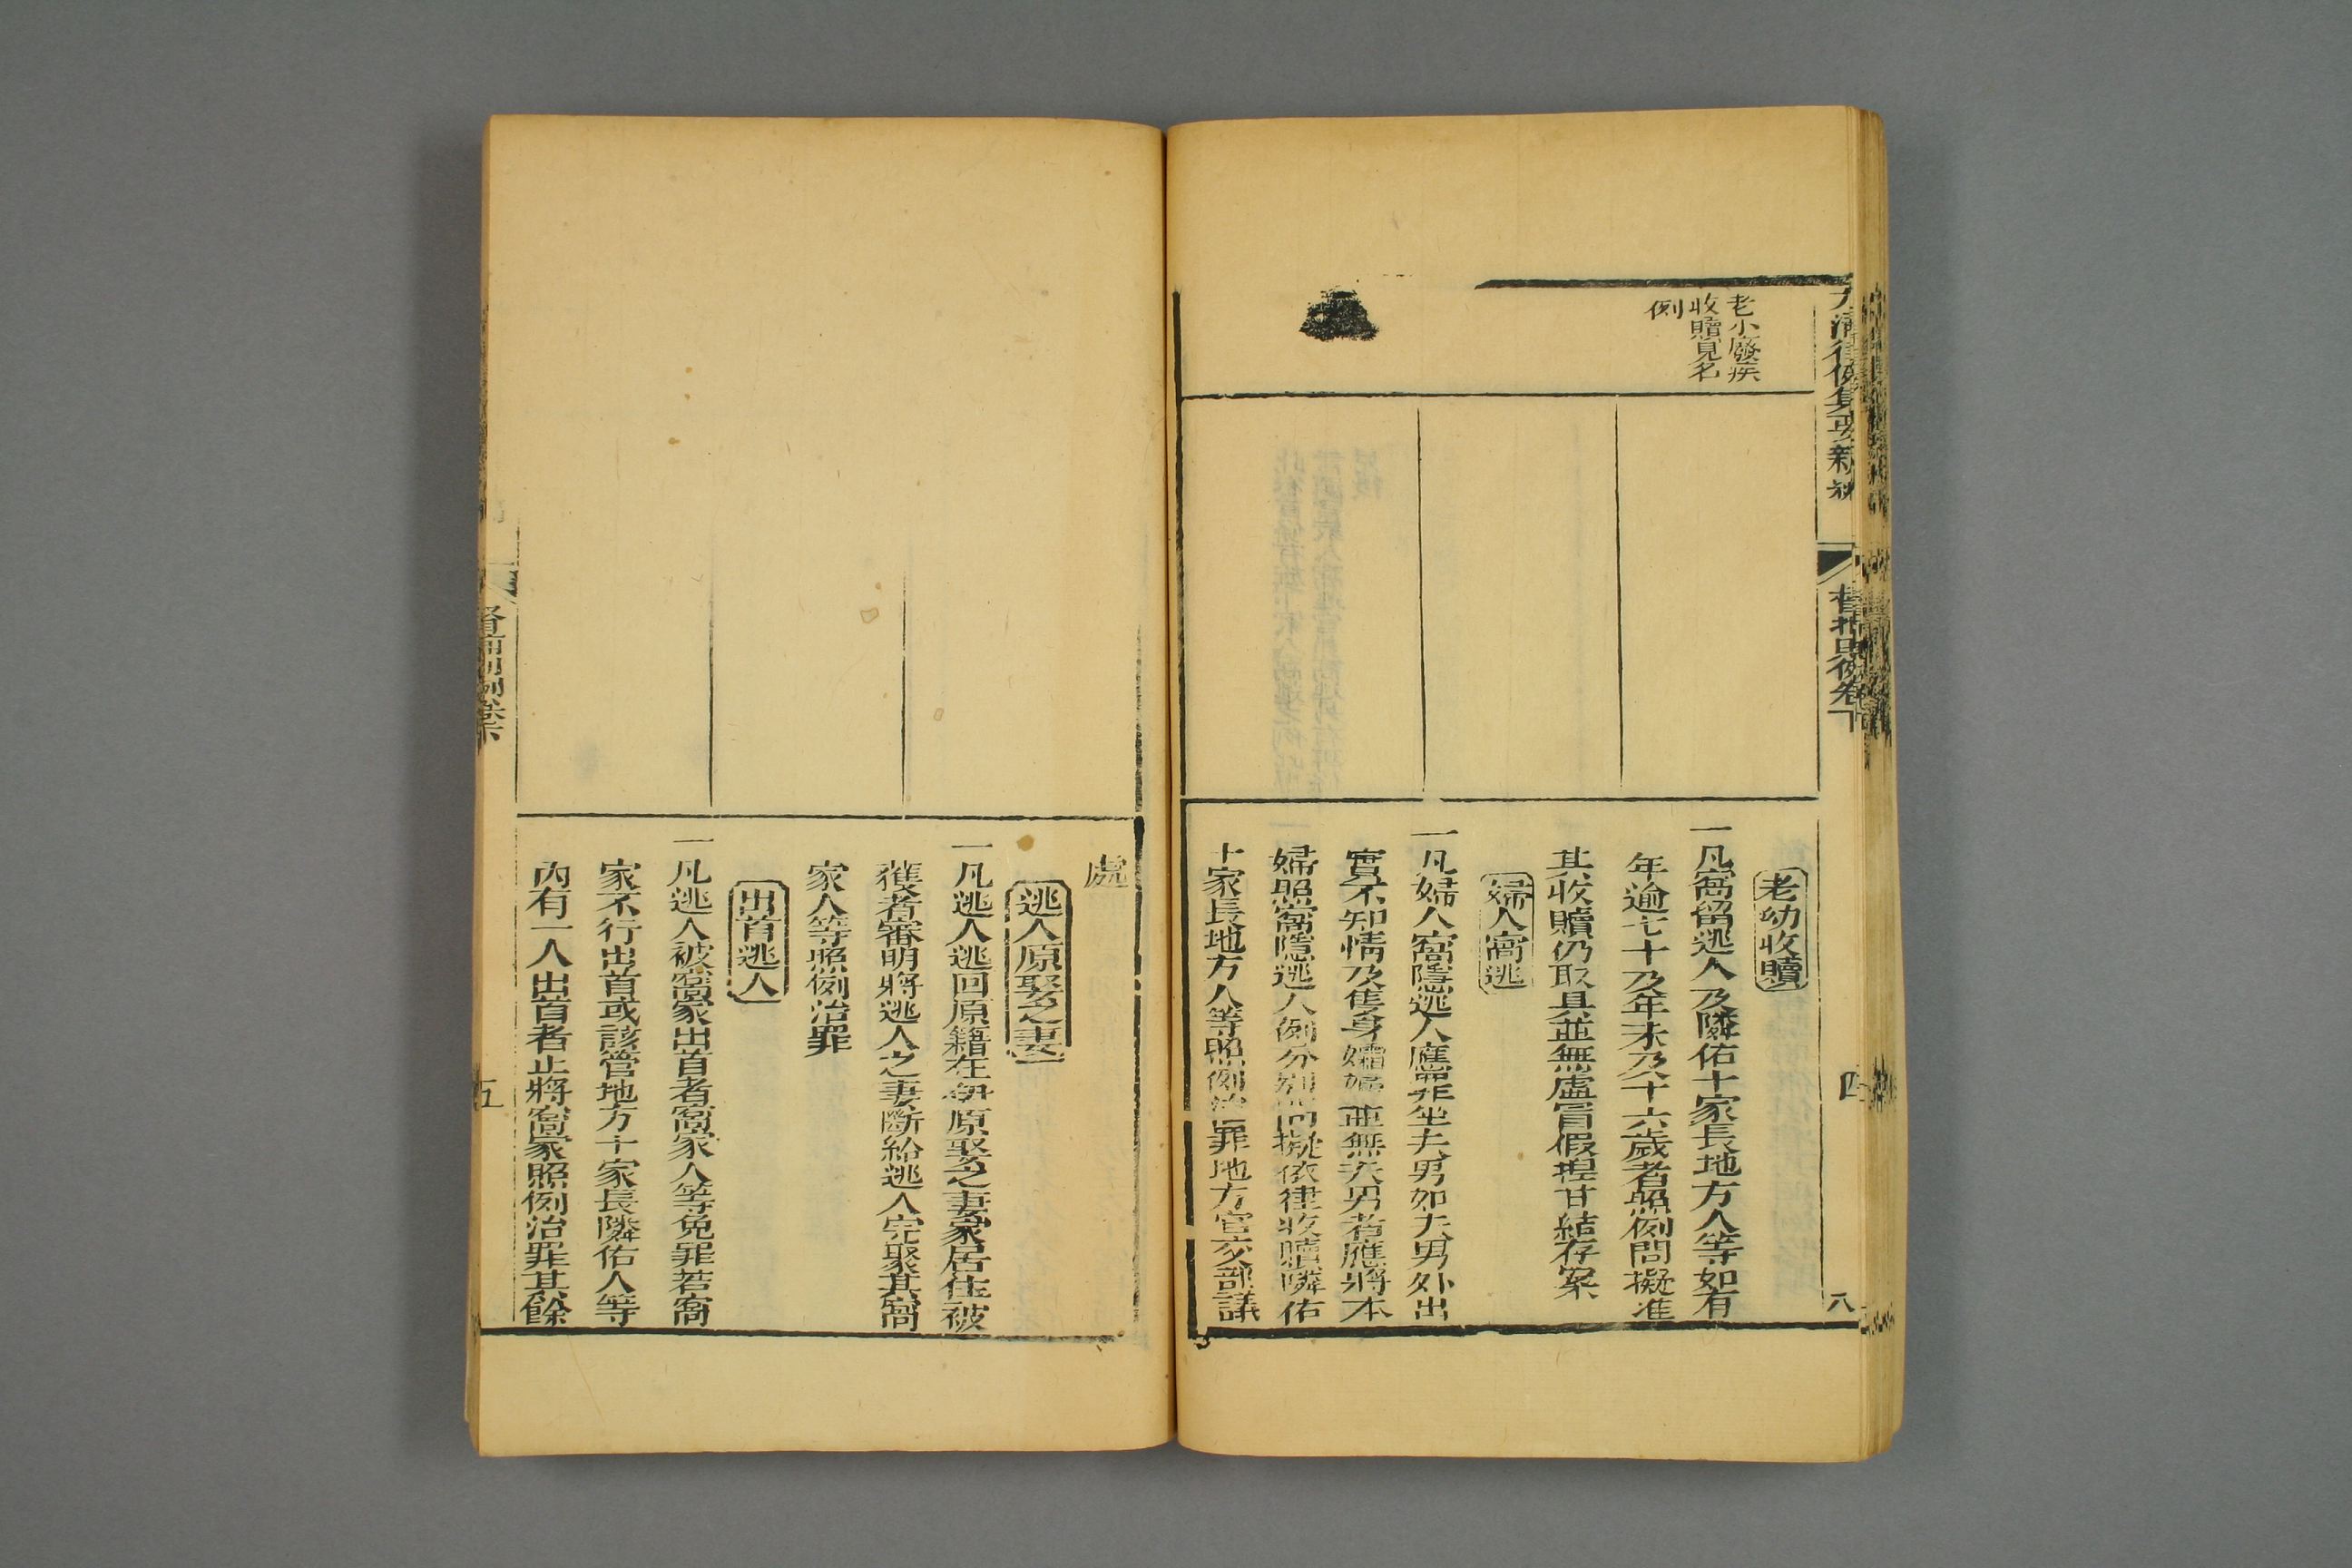 大清律例集要新編
督捕則例卷下
四
八
老小廢疾
收贖見名
例
老幼收贖
一凡窩留逃人及隣佑十家長地方人等如有
年逾七十及年未及十六歲者照例問擬准
其收贖仍取具並無虛冒假捏甘結存案
婦人窩逃
一凡婦人窩隱逃人應罪坐夫男如夫男外出
實不知情及隻身孀婦並無夫男者應將本
婦照窩隱逃人例分別問擬依律收贖隣佑
十家長地方人等照例治罪地方官交部議
處
逃人原娶之妻
一凡逃人逃回原籍在伊原娶之妻家居住被
獲者審明將逃人之妻斷給逃人完聚其窩
家人等照例治罪
出首逃人
一凡逃人被窩家出首者窩家人等免罪若窩
家不行出首或該管地方十家長隣佑人等
內有一人出首者止將窩家照例治罪其餘
督捕則例卷下
五